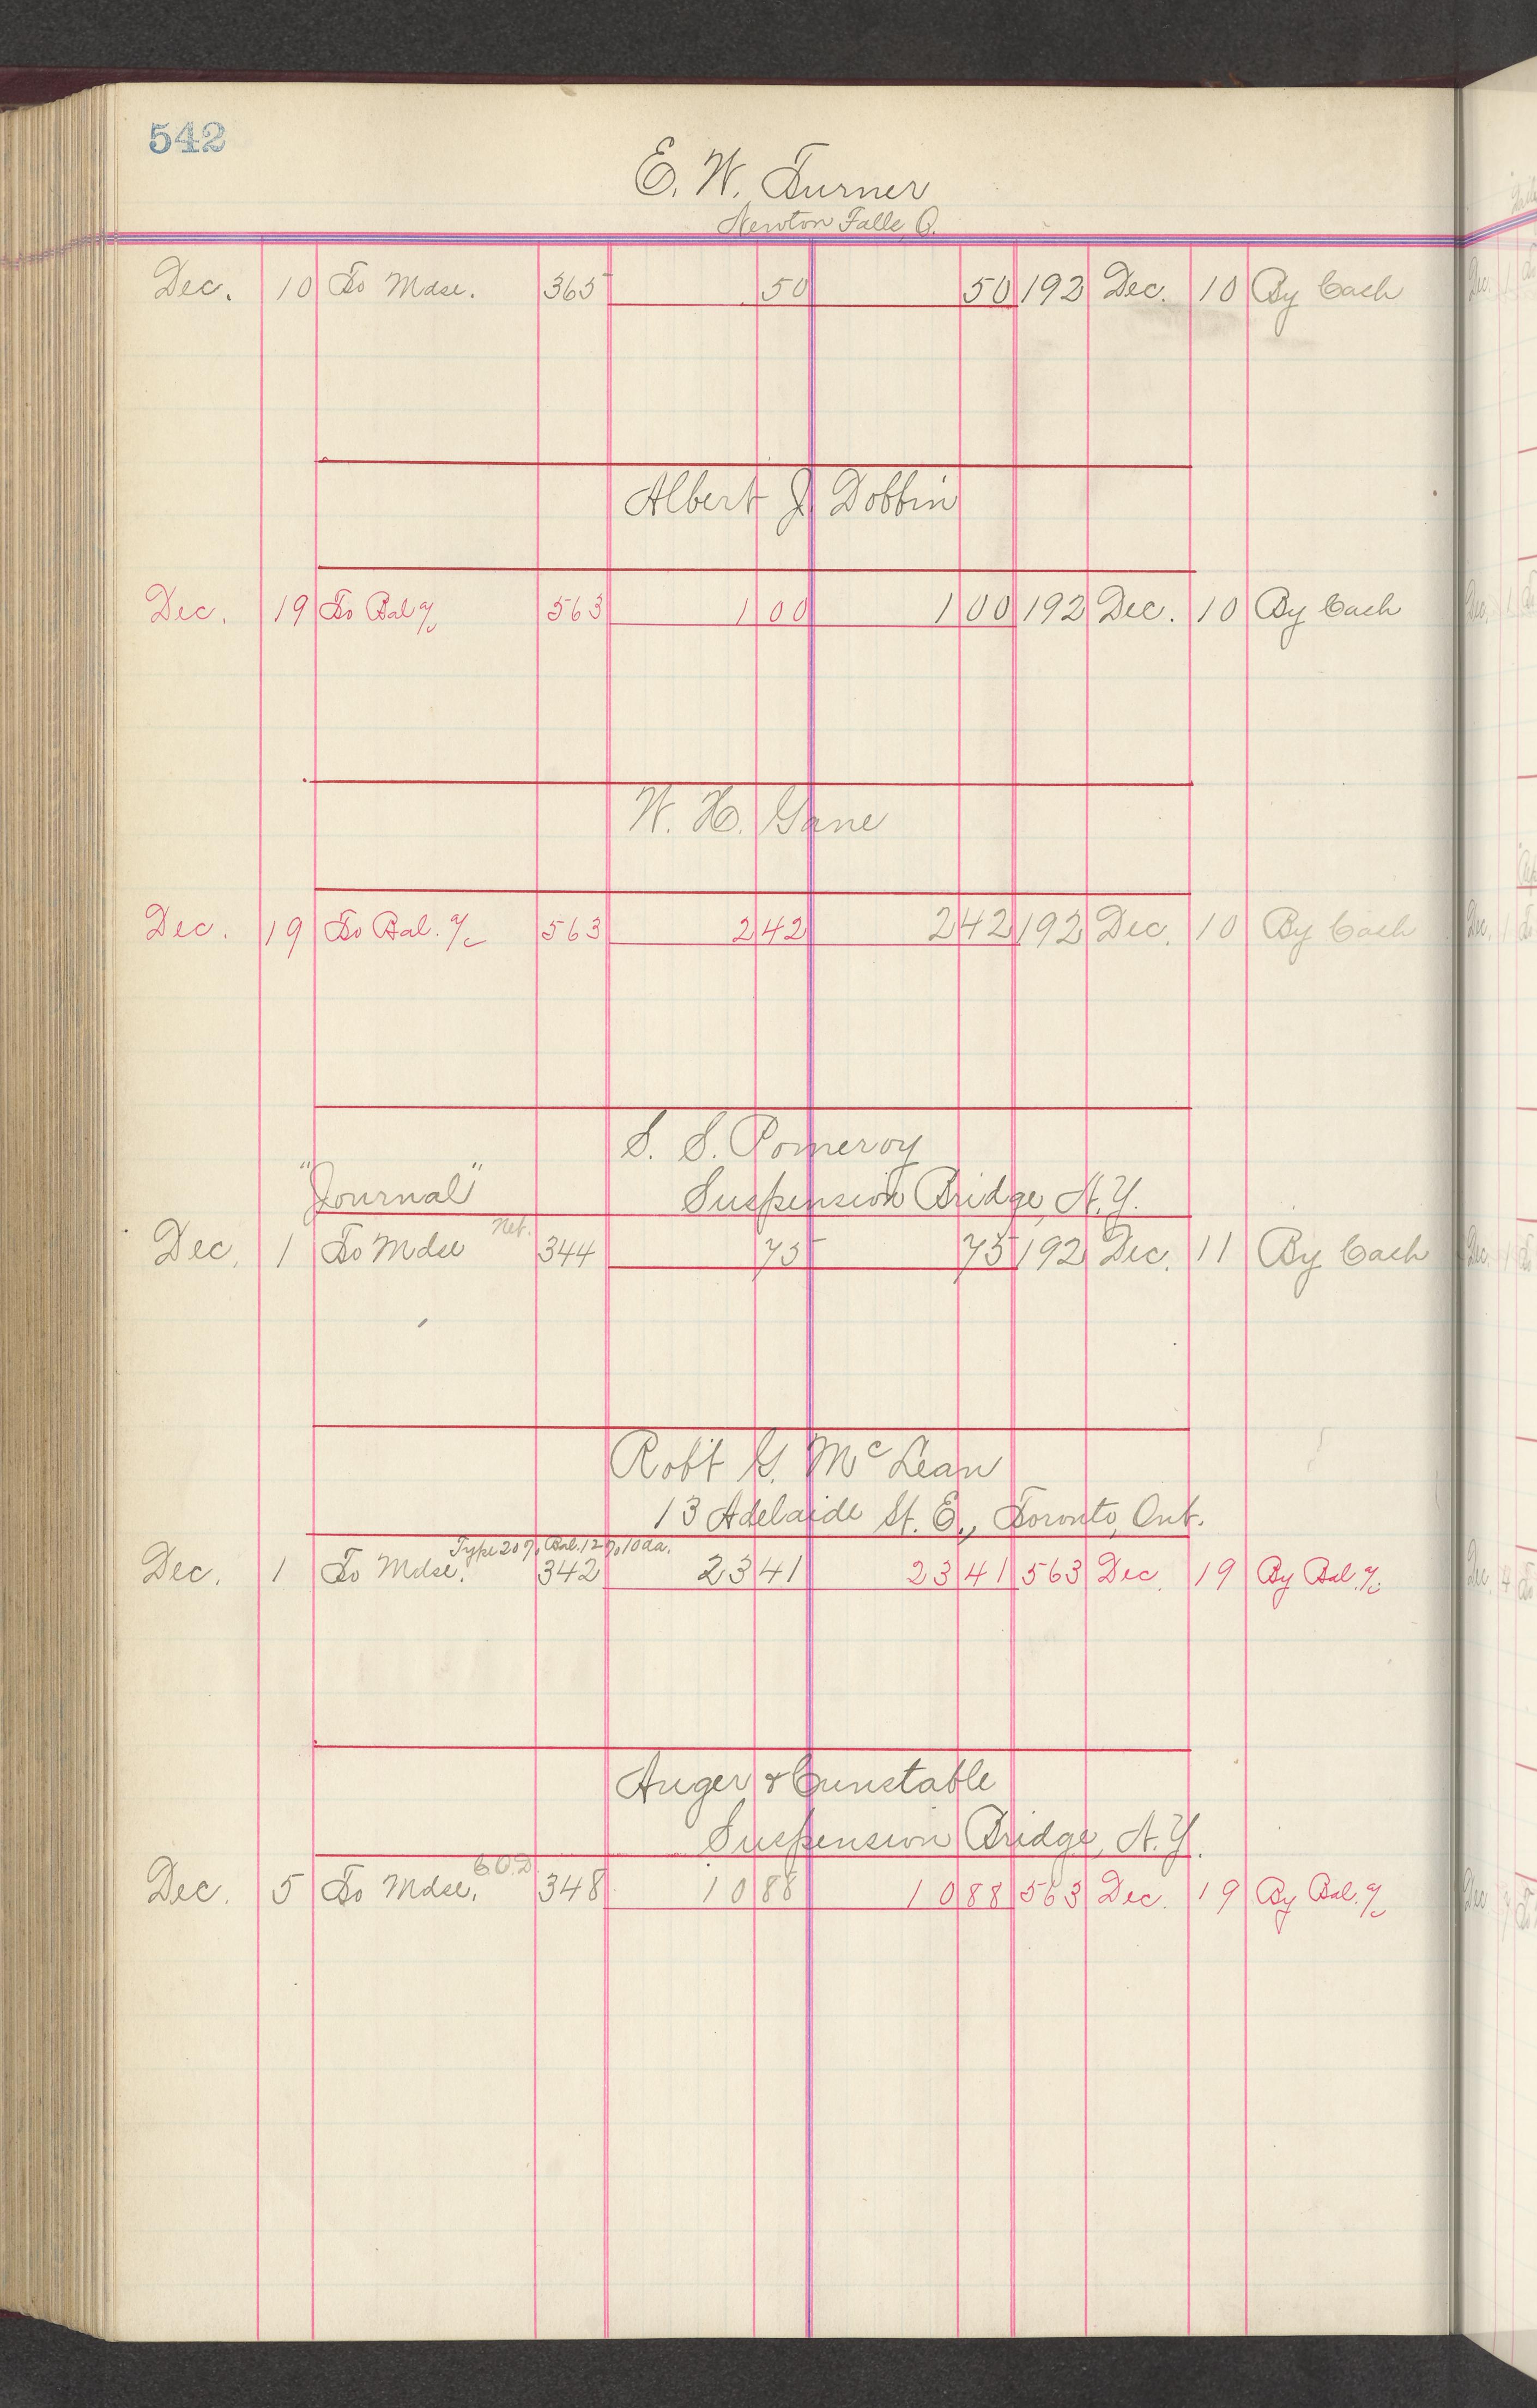 542
E. W. Turner
Newton Falls, O.
Dec. 10 To Mdse. 365 50 50 192 Dec. 10 By Cash
Albert J. Dobbin
Dec. 19 To Bal a/c 563 1 00 1 00 192 Dec. 10 By Cash
W. H. Gane
Dec. 19 To Bal. a/c 563 2 42 2 42 192 Dec. 10 By Cash
S. S. Pomeroy
"Journal" Suspension Bridge, N.Y.
Net.
Dec. 1 To Mdse 344 75 75 192 Dec. 11 By Cash
Robt G. McLean
13 Adelaide St. E., Toronto, Ont.
Type 20%, Bal. 12% 10 da.
Dec. 1 To Mdse. 342 23 41 23 41 563 Dec. 19 By Bal. a/c
Auger & Cunstable
Suspension Bridge, N.Y.
C.O.D.
Dec. 5 To Mdse. 348 10 88 10 88 563 Dec. 19 By Bal. a/c